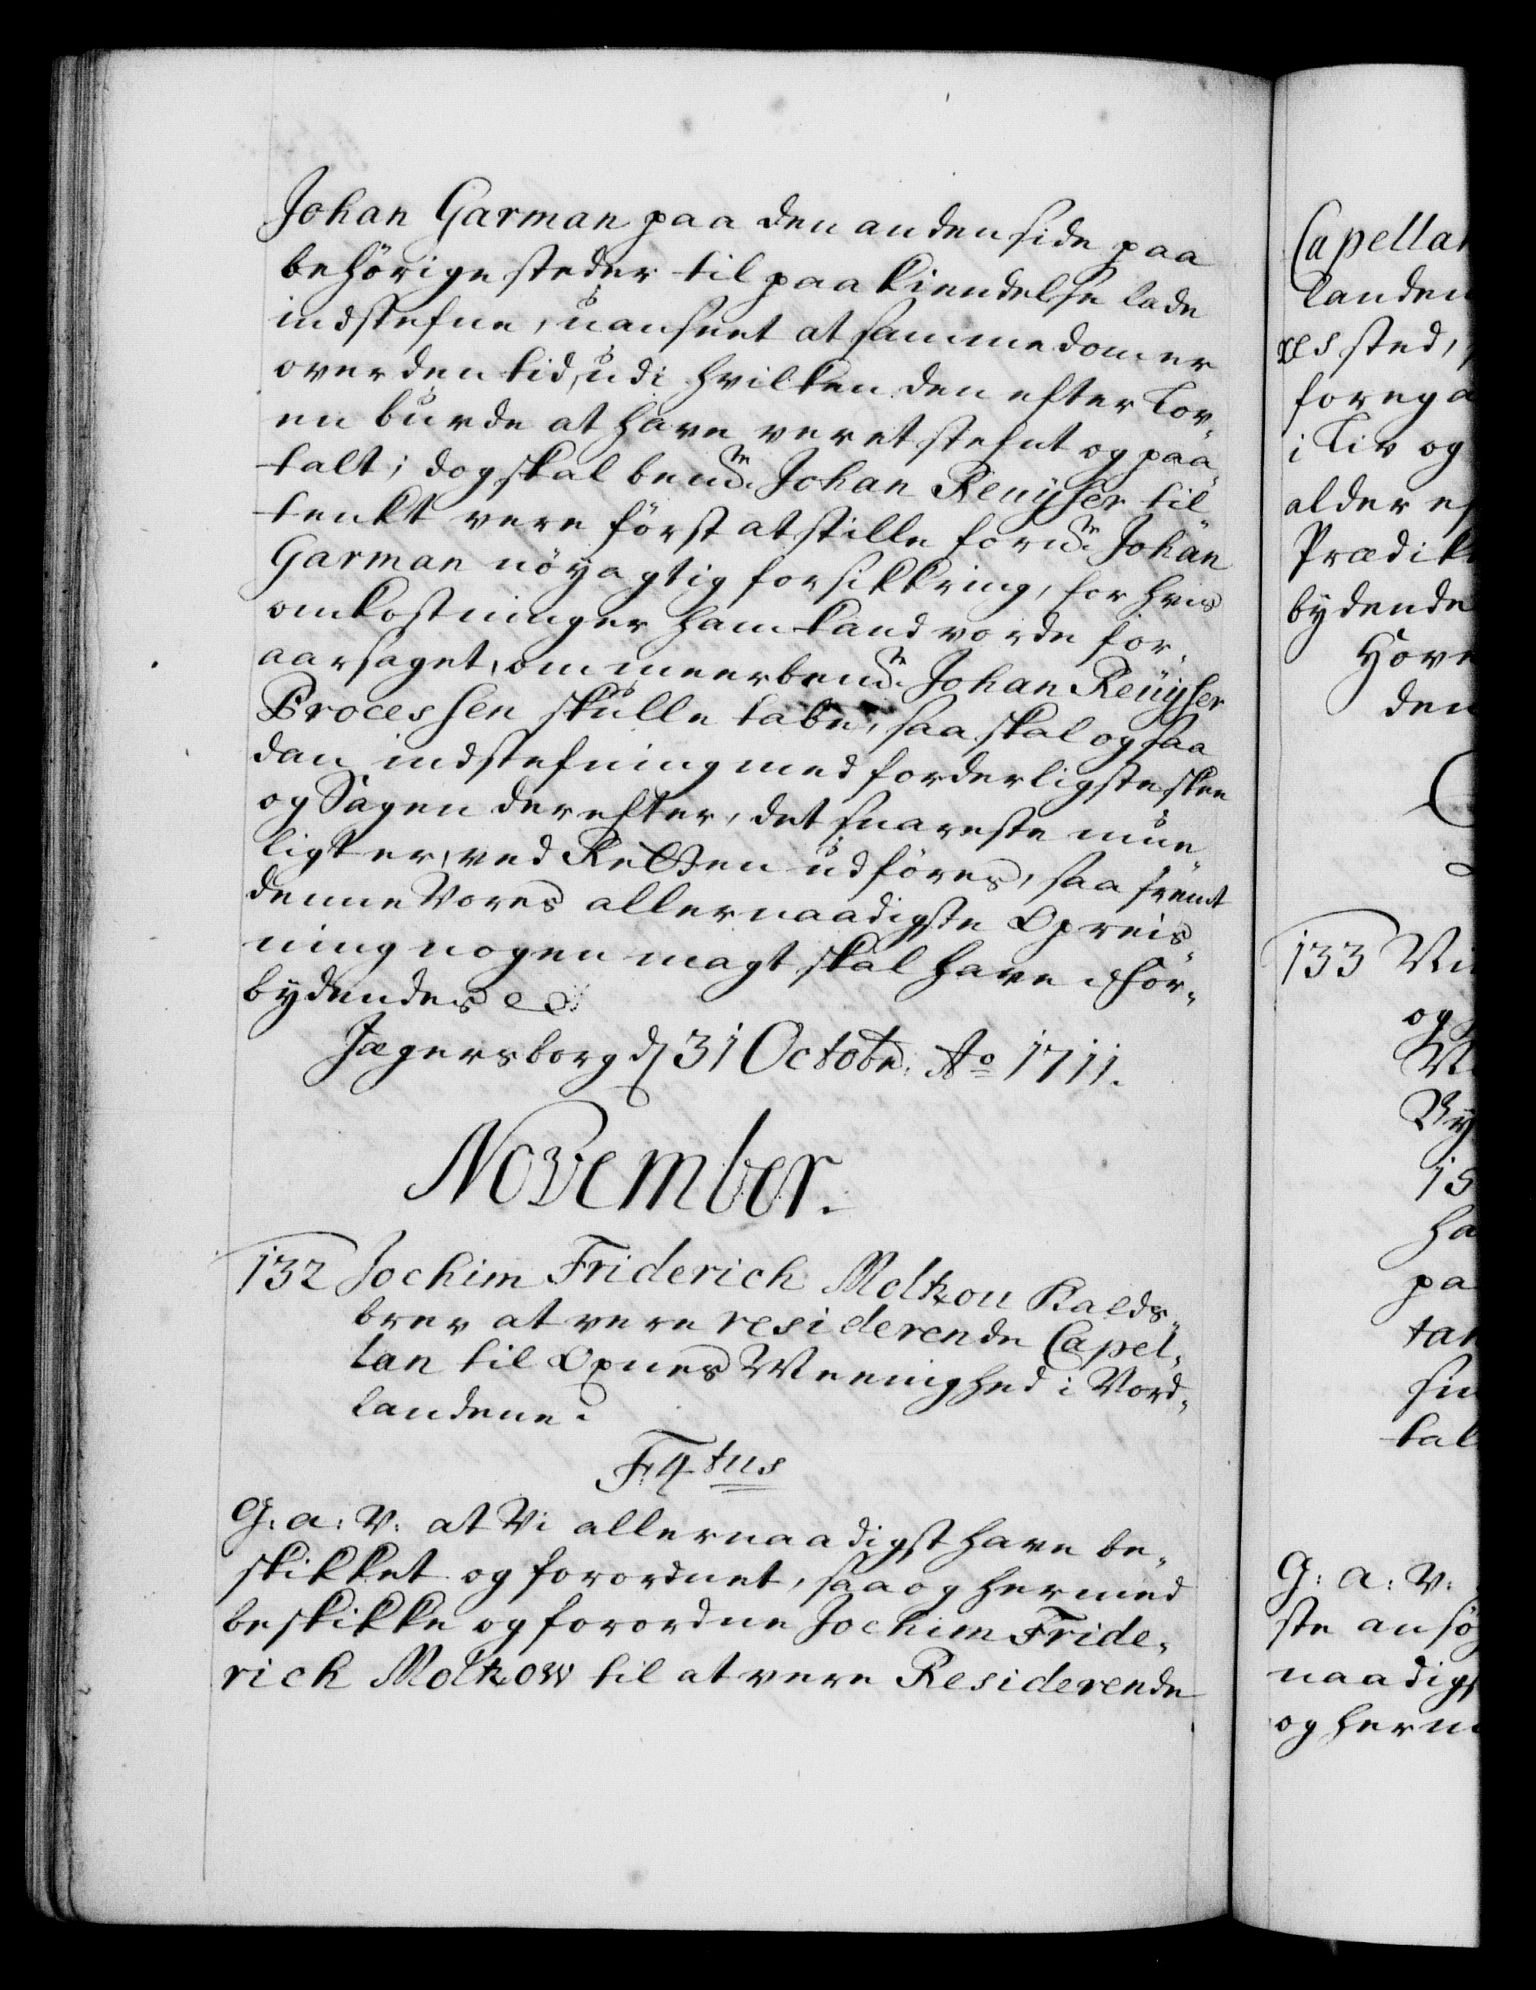 Johan Garman paa den anden side paa
behörige steder til paa kiendelse lade
indstefne, uanseet at samme dom er
over den tid, udi hvilken den efter Lov-
en burde at have veret stefnt og paa
talt; dog skal bemte Johan Reuyser til
tenkt vere först at stille formte Johan
Garman nöyagtig forsikkring, for hvis
omkostninger ham kand vorde for-
aarsaget, om meerbemte Johan Reuyser
Processen skulle tabe, saa skal og saa
dan indstefning med forderligste skee
og Sagen derefter, det snareste mue-
ligt er, ved Retten udföres, saa fremt
denne Vores allernaadigste Opreis-
ning nogen magt skal have. For-
bydendes
Jægersborg d 31 Octobr: Ao 1711.
November.
132 Jochim Friderich Moltzou Kalds-
brev at vere residerende Capel-
lan til Opnes Meenighed i Nord-
landene.
F: 4tus
G: a: V: at Vi allernaadigst have be-
skikket og forordnet, saa og hermed
beskikke og forordne Jochim Fride-
rich Moltzow til at vere Residerende
Capellan
landen
sted,
i Liv og
alder
Prædik
bydende
den
133 Vi
og
By
15
ha
pa
tan
G: a: V:
ste ansög
naadigs
og herm